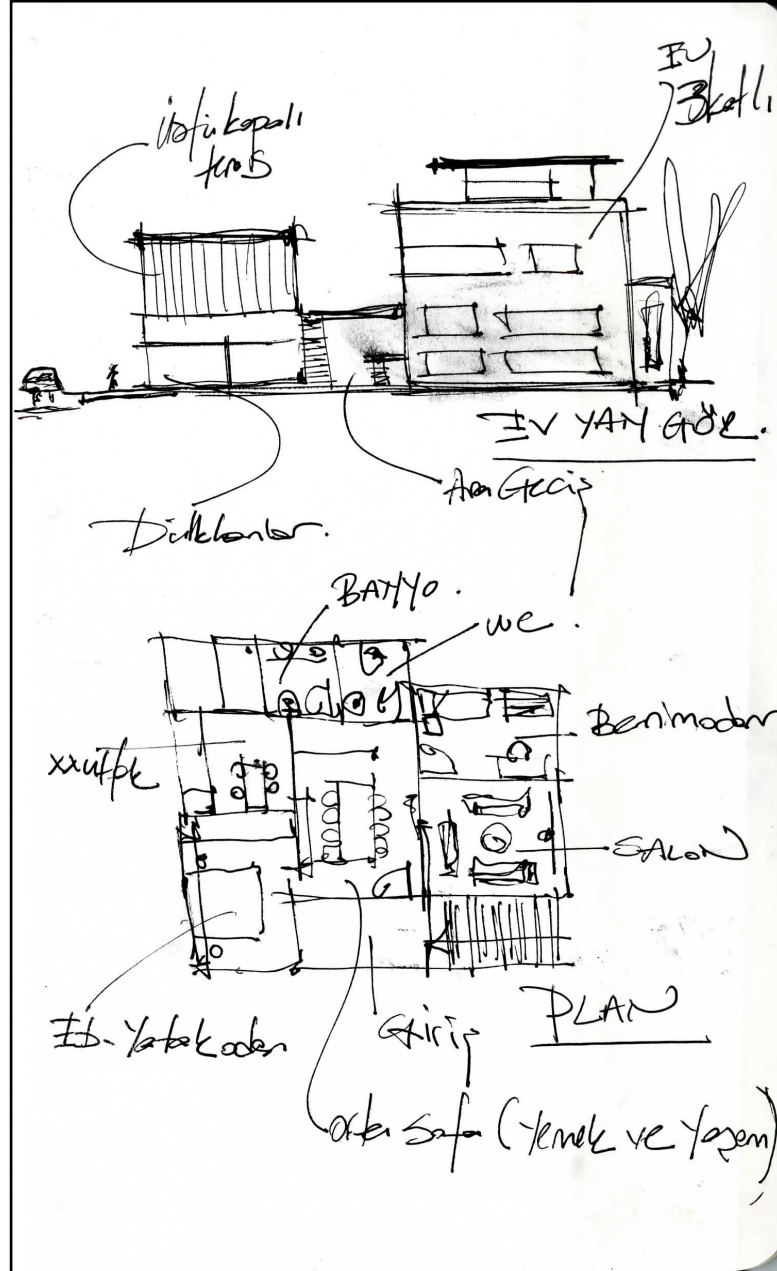 üstü kapalı
teras
EV
3katlı
EV YAN GÖR.
Ara Geciş
Dükkanlar.
BANYO.
WC.
Benimodam
SALON
Eb. Yatakodası
Giriş
PLAN
orta Sofa (Yemek ve Yaşam)